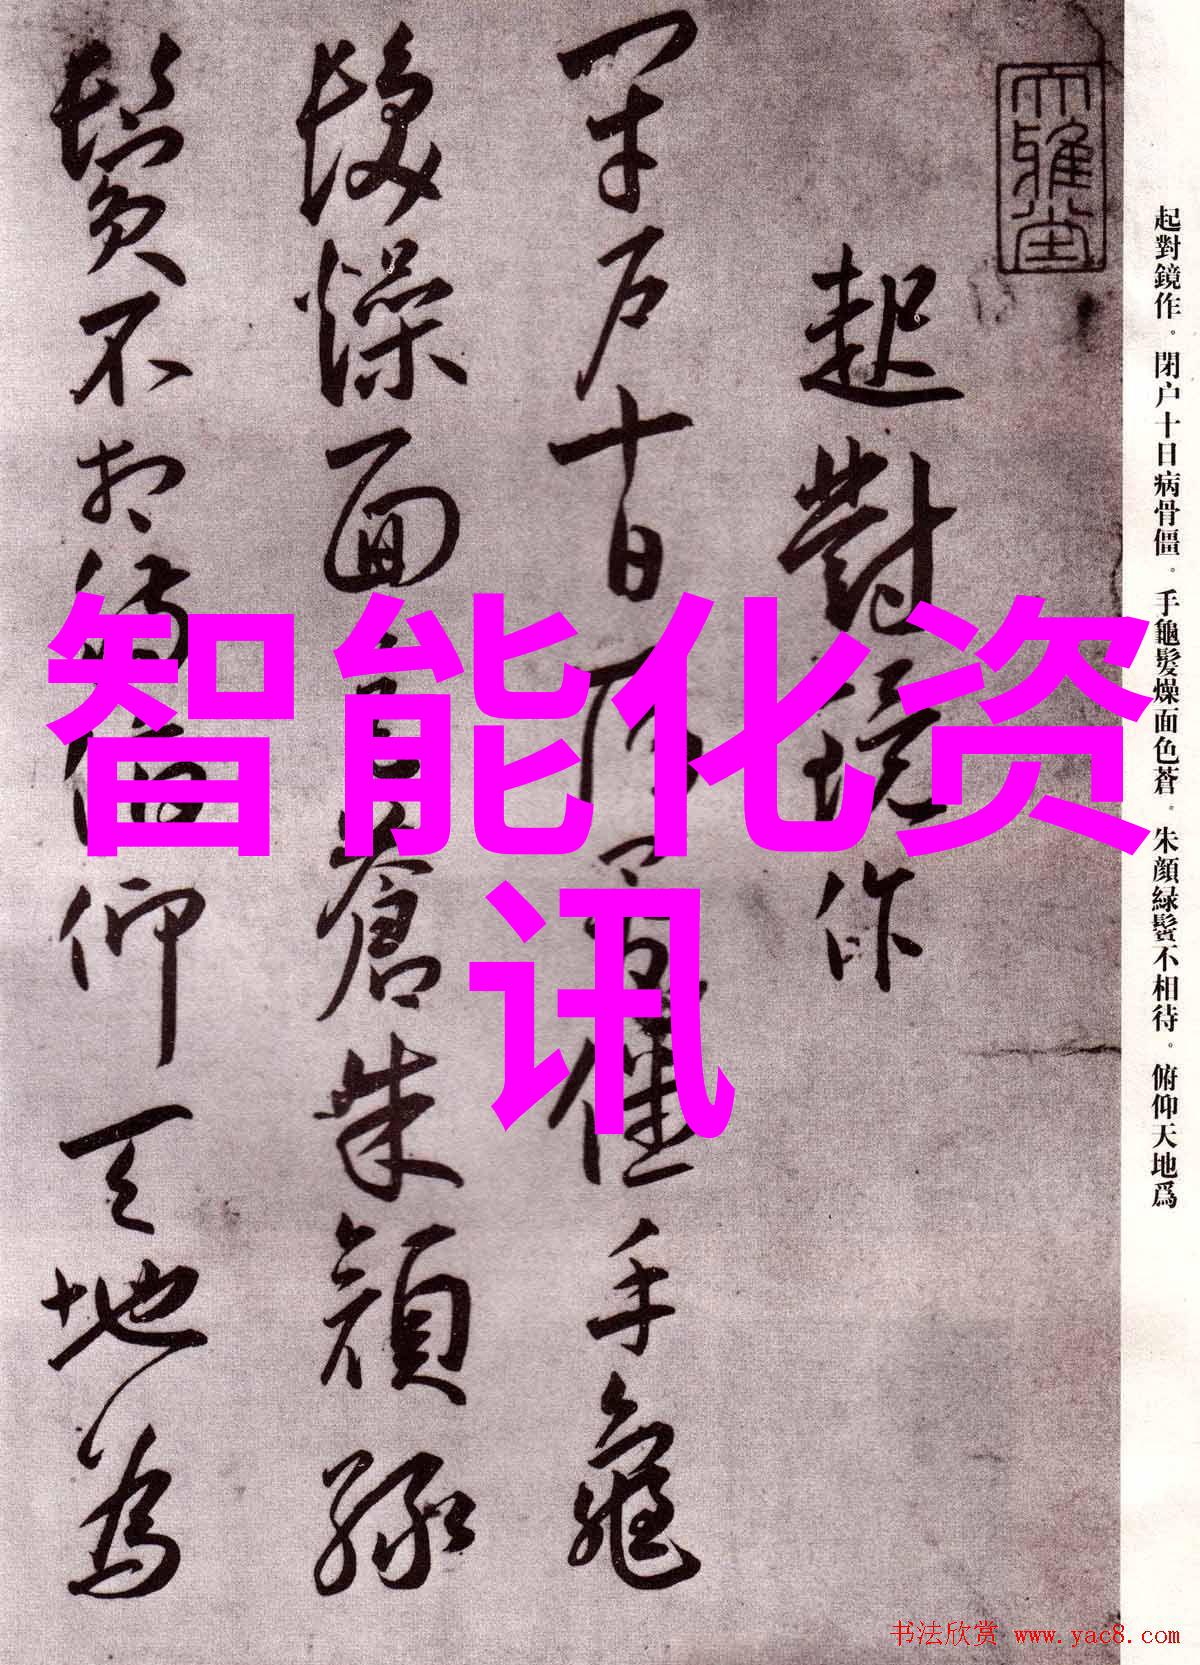 大雅堂
起對鏡作
閉户十日病骨僵手龜
髮燥面色蒼朱顔緑
鬢不相待俯仰天地為
起對鏡作。閉户十日病骨僵。手龜髮燥面色蒼。朱顔緑鬢不相待。俯仰天地爲
智能化资
讯
书法欣赏 www.yac8.com